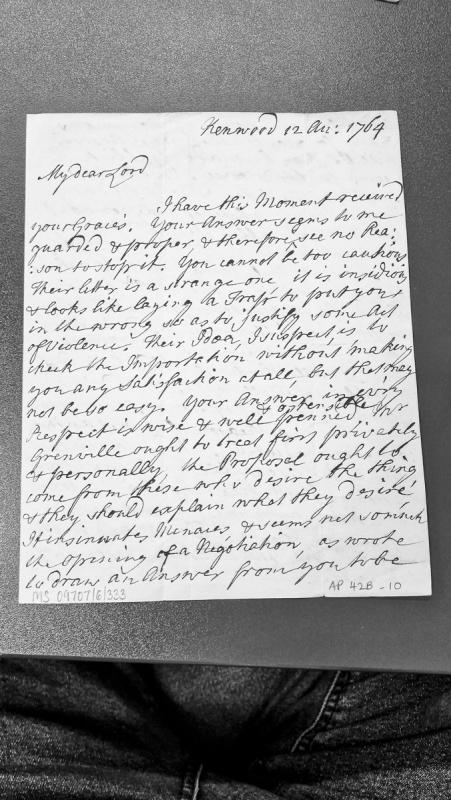 Kenwood 12 Au: 1764
My dear Lord
I have this Moment received
your Grace's. Your Answer seems to me
guarded & proper, & therefore see no Rea:
:son to stop it. You cannot be too cautious
Their letter is a strange one it is insidious
& looks like laying a Trapp to put you
in the wrong so as to justify some Act
of Violence Their Idea, I suspect, is to
check the Importation without making
you any Satisfaction at all, but that may
not be so easy. Your Answer in every
Respect is wise & well penned, Mr
Grenville ought to treat first privately
& personally, the Proposal ought to
come from those who desire the thing
& they should explain what they desire
It insinuates Menaces & seems not so much
the Opening of a Negotiation, as wrote
to draw an Answer from you to be
MS 09707/6/333
AP 42B - 10